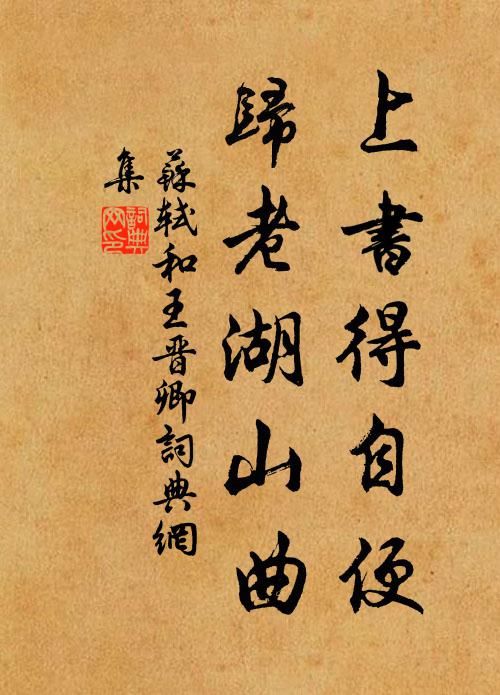 上書得自便
歸老湖山曲
蘇軾和王晋卿詞典網
集
詞典
网印